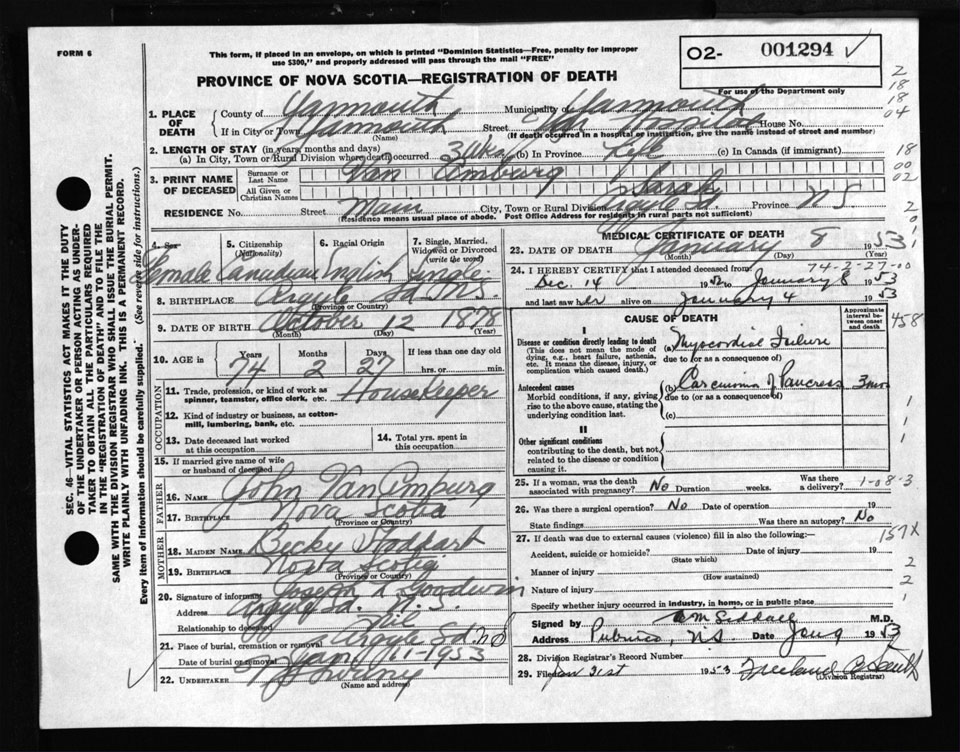 FORM 6
This form, if placed in an envelope, on which is printed "Dominion Statistics—Free, penalty for improper
use $300," and properly addressed will pass through the mail "FREE"
O2- 001294 ✓
For use of the Department only
PROVINCE OF NOVA SCOTIA—REGISTRATION OF DEATH
2
18
18
04
18
00
02
2
0
1
1. PLACE OF DEATH
County of Yarmouth Municipality of Yarmouth
If in City or Town Yarmouth Street Yar Hospital House No.
(Name) (If death occurred in a hospital or institution, give the name instead of street and number)
2. LENGTH OF STAY (in years, months and days)
(a) In City, Town or Rural Division where death occurred 3 Wks (b) In Province Life (c) In Canada (if immigrant)
3. PRINT NAME OF DECEASED
Surname or Last Name Van Amburg
All Given or Christian Names Sarah
RESIDENCE No. Street Main City, Town or Rural Division Argyle Sd. Province N S
(Residence means usual place of abode. Post Office Address for residents in rural parts not sufficient)
4. Sex Female
5. Citizenship (Nationality) Canadian
6. Racial Origin English
7. Single, Married, Widowed or Divorced (write the word) Single
8. BIRTHPLACE Argyle Sd N.S.
(Province or Country)
9. DATE OF BIRTH October 12 1878
(Month) (Day) (Year)
10. AGE in Years Months Days If less than one day old
74 2 27 hrs. or min.
OCCUPATION
11. Trade, profession, or kind of work as
spinner, teamster, office clerk, etc. HouseKeeper
12. Kind of industry or business, as cotton-
mill, lumbering, bank, etc.
13. Date deceased last worked
at this occupation
14. Total yrs. spent in
this occupation
15. If married give name of wife
or husband of deceased
FATHER
16. NAME John Van Amburg
17. BIRTHPLACE Nova Scotia
(Province or Country)
MOTHER
18. MAIDEN NAME Becky Stoddart
19. BIRTHPLACE Nova Scotia
(Province or Country)
20. Signature of informant Joseph A Goodwin
Address Argyle Sd. N.S.
Relationship to deceased Nil
21. Place of burial, cremation or removal Argyle Sd. N S
Date of burial or removal Jan 11-1953
22. UNDERTAKER
(Name and address)
✓
MEDICAL CERTIFICATE OF DEATH
23. DATE OF DEATH January 8 1953
(Month) (Day) (Year)
74-2-27-00
24. I HEREBY CERTIFY that I attended deceased from
Dec. 14 1952 to January 8 1953
and last saw her alive on January 4 1953
CAUSE OF DEATH
Approximate interval between onset and death
458
I
Disease or condition directly leading to death
(This does not mean the mode of dying, e.g., heart failure, asthenia, etc. It means the disease, injury, or complication which caused death.)
(a) Myocardial Failure
due to (or as a consequence of)
Antecedent causes
Morbid conditions, if any, giving rise to the above cause, stating the underlying condition last.
(b) Carcinoma of Pancreas 3 mos
due to (or as a consequence of)
(c)
II
Other significant conditions
contributing to the death, but not related to the disease or condition causing it.
1
1
1
25. If a woman, was the death associated with pregnancy? No Duration weeks. Was there a delivery? 1-08-3
26. Was there a surgical operation? No Date of operation 19
State findings Was there an autopsy? No
27. If death was due to external causes (violence) fill in also the following:— 157X
Accident, suicide or homicide? Date of injury 19
(State which)
Manner of injury 2
(How sustained)
Nature of injury 2
Specify whether injury occurred in industry, in home, or in public place 1
Signed by M.D.
Address Pubnico, N.S. Date Jan 9 1953
28. Division Registrar's Record Number
29. Filed Jan 31st 1953
(Division Registrar)
SEC. 46—VITAL STATISTICS ACT MAKES IT THE DUTY
OF THE UNDERTAKER OR PERSON ACTING AS UNDER-
TAKER TO OBTAIN ALL THE PARTICULARS REQUIRED
IN THE "REGISTRATION OF DEATH" AND TO FILE THE
SAME WITH THE DIVISION REGISTRAR WHO SHALL ISSUE THE BURIAL PERMIT.
WRITE PLAINLY WITH UNFADING INK. THIS IS A PERMANENT RECORD.
Every item of information should be carefully supplied. (See reverse side for instructions.)